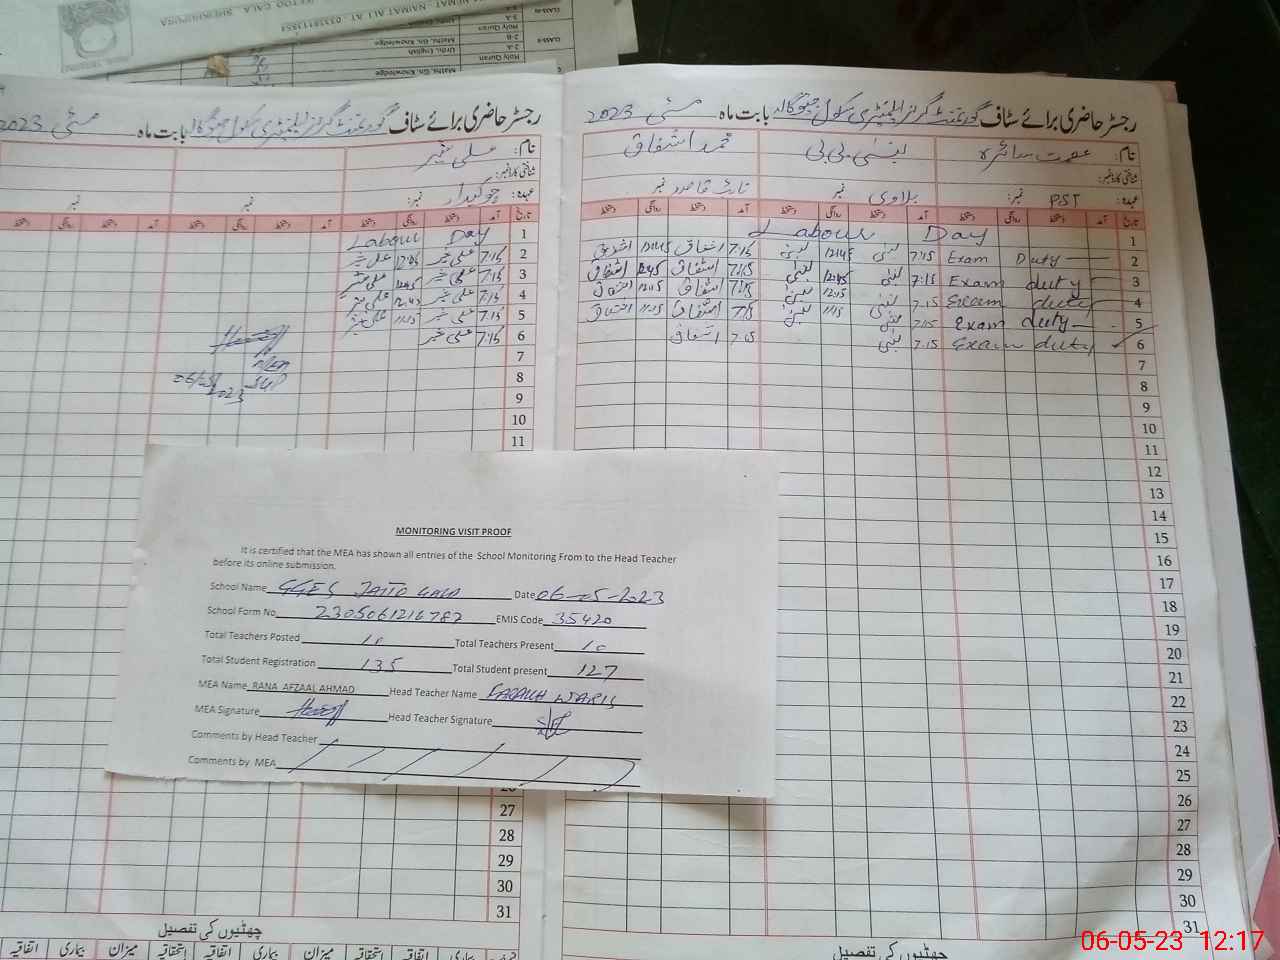 NAIMAT ALI AT 03338113854
TOO GALA, SHEIKHUPURA
Holy Quran
Maths, Gn. Knowledge
Urdu, English
Holy Quran
Maths, Gn. Knowledge
رجسٹر حاضری برائے سٹاف گورنمنٹ گرلز ایلیمنٹری سکول جیٹو گالہ بابت ماہ مئی 2023
نام: علی شیر
شناختی کارڈ نمبر:
عہدہ: چوکیدار نمبر نمبر
تاریخ آمد دستخط روانگی دستخط آمد دستخط روانگی دستخط آمد دستخط روانگی دستخط
1 Labour Day
2 7:15 علی شیر
3 7:15 علی شیر 12:45
4 7:15 علی شیر 12:45
5 7:15 علی شیر 11:15
6 7:15 علی شیر
7
8
9
10
11
06/05/2023
رجسٹر حاضری برائے سٹاف گورنمنٹ گرلز ایلیمنٹری سکول جیٹو گالہ بابت ماہ مئی 2023
نام: عصمت سائرہ لبنیٰ بی بی محمد اشفاق
شناختی کارڈ نمبر:
عہدہ: PST نمبر: نمبر نائب قاصد نمبر
تاریخ آمد دستخط روانگی دستخط آمد دستخط روانگی دستخط آمد دستخط روانگی دستخط
1 Labour Day
2 Exam Duty 7:15 لبنیٰ 12:45 لبنیٰ 7:15 اشفاق 12:45 اشفاق
3 Exam duty 7:15 لبنیٰ 12:45 لبنیٰ 7:15 اشفاق 12:45 اشفاق
4 Exam duty 7:15 لبنیٰ 12:15 لبنیٰ 7:15 اشفاق 12:15 اشفاق
5 Exam duty 7:15 لبنیٰ 11:15 لبنیٰ 7:15 اشفاق 11:15 اشفاق
6 Exam duty 7:15 لبنیٰ 7:15 اشفاق
7
8
9
10
11
12
13
14
15
16
17
18
19
20
21
22
23
24
25
26
27
28
29
30
31
MONITORING VISIT PROOF
It is certified that the MEA has shown all entries of the School Monitoring From to the Head Teacher
before its online submission.
School Name GGES JATTO GALA Date 06-05-2023
School Form No. 2305061216782 EMIS Code 35420
Total Teachers Posted 10 Total Teachers Present 10
Total Student Registration 135 Total Student present 127
MEA Name RANA AFZAAL AHMAD Head Teacher Name FARAKH WARIS
MEA Signature Head Teacher Signature
Comments by Head Teacher
Comments by MEA
26
27
28
29
30
31
چھٹیوں کی تفصیل
اتفاقیہ بیماری میزان استحقاقیہ اتفاقیہ بیماری میزان استحقاقیہ اتفاقیہ بیماری
چھٹیوں کی تفصیل
06-05-23 12:17